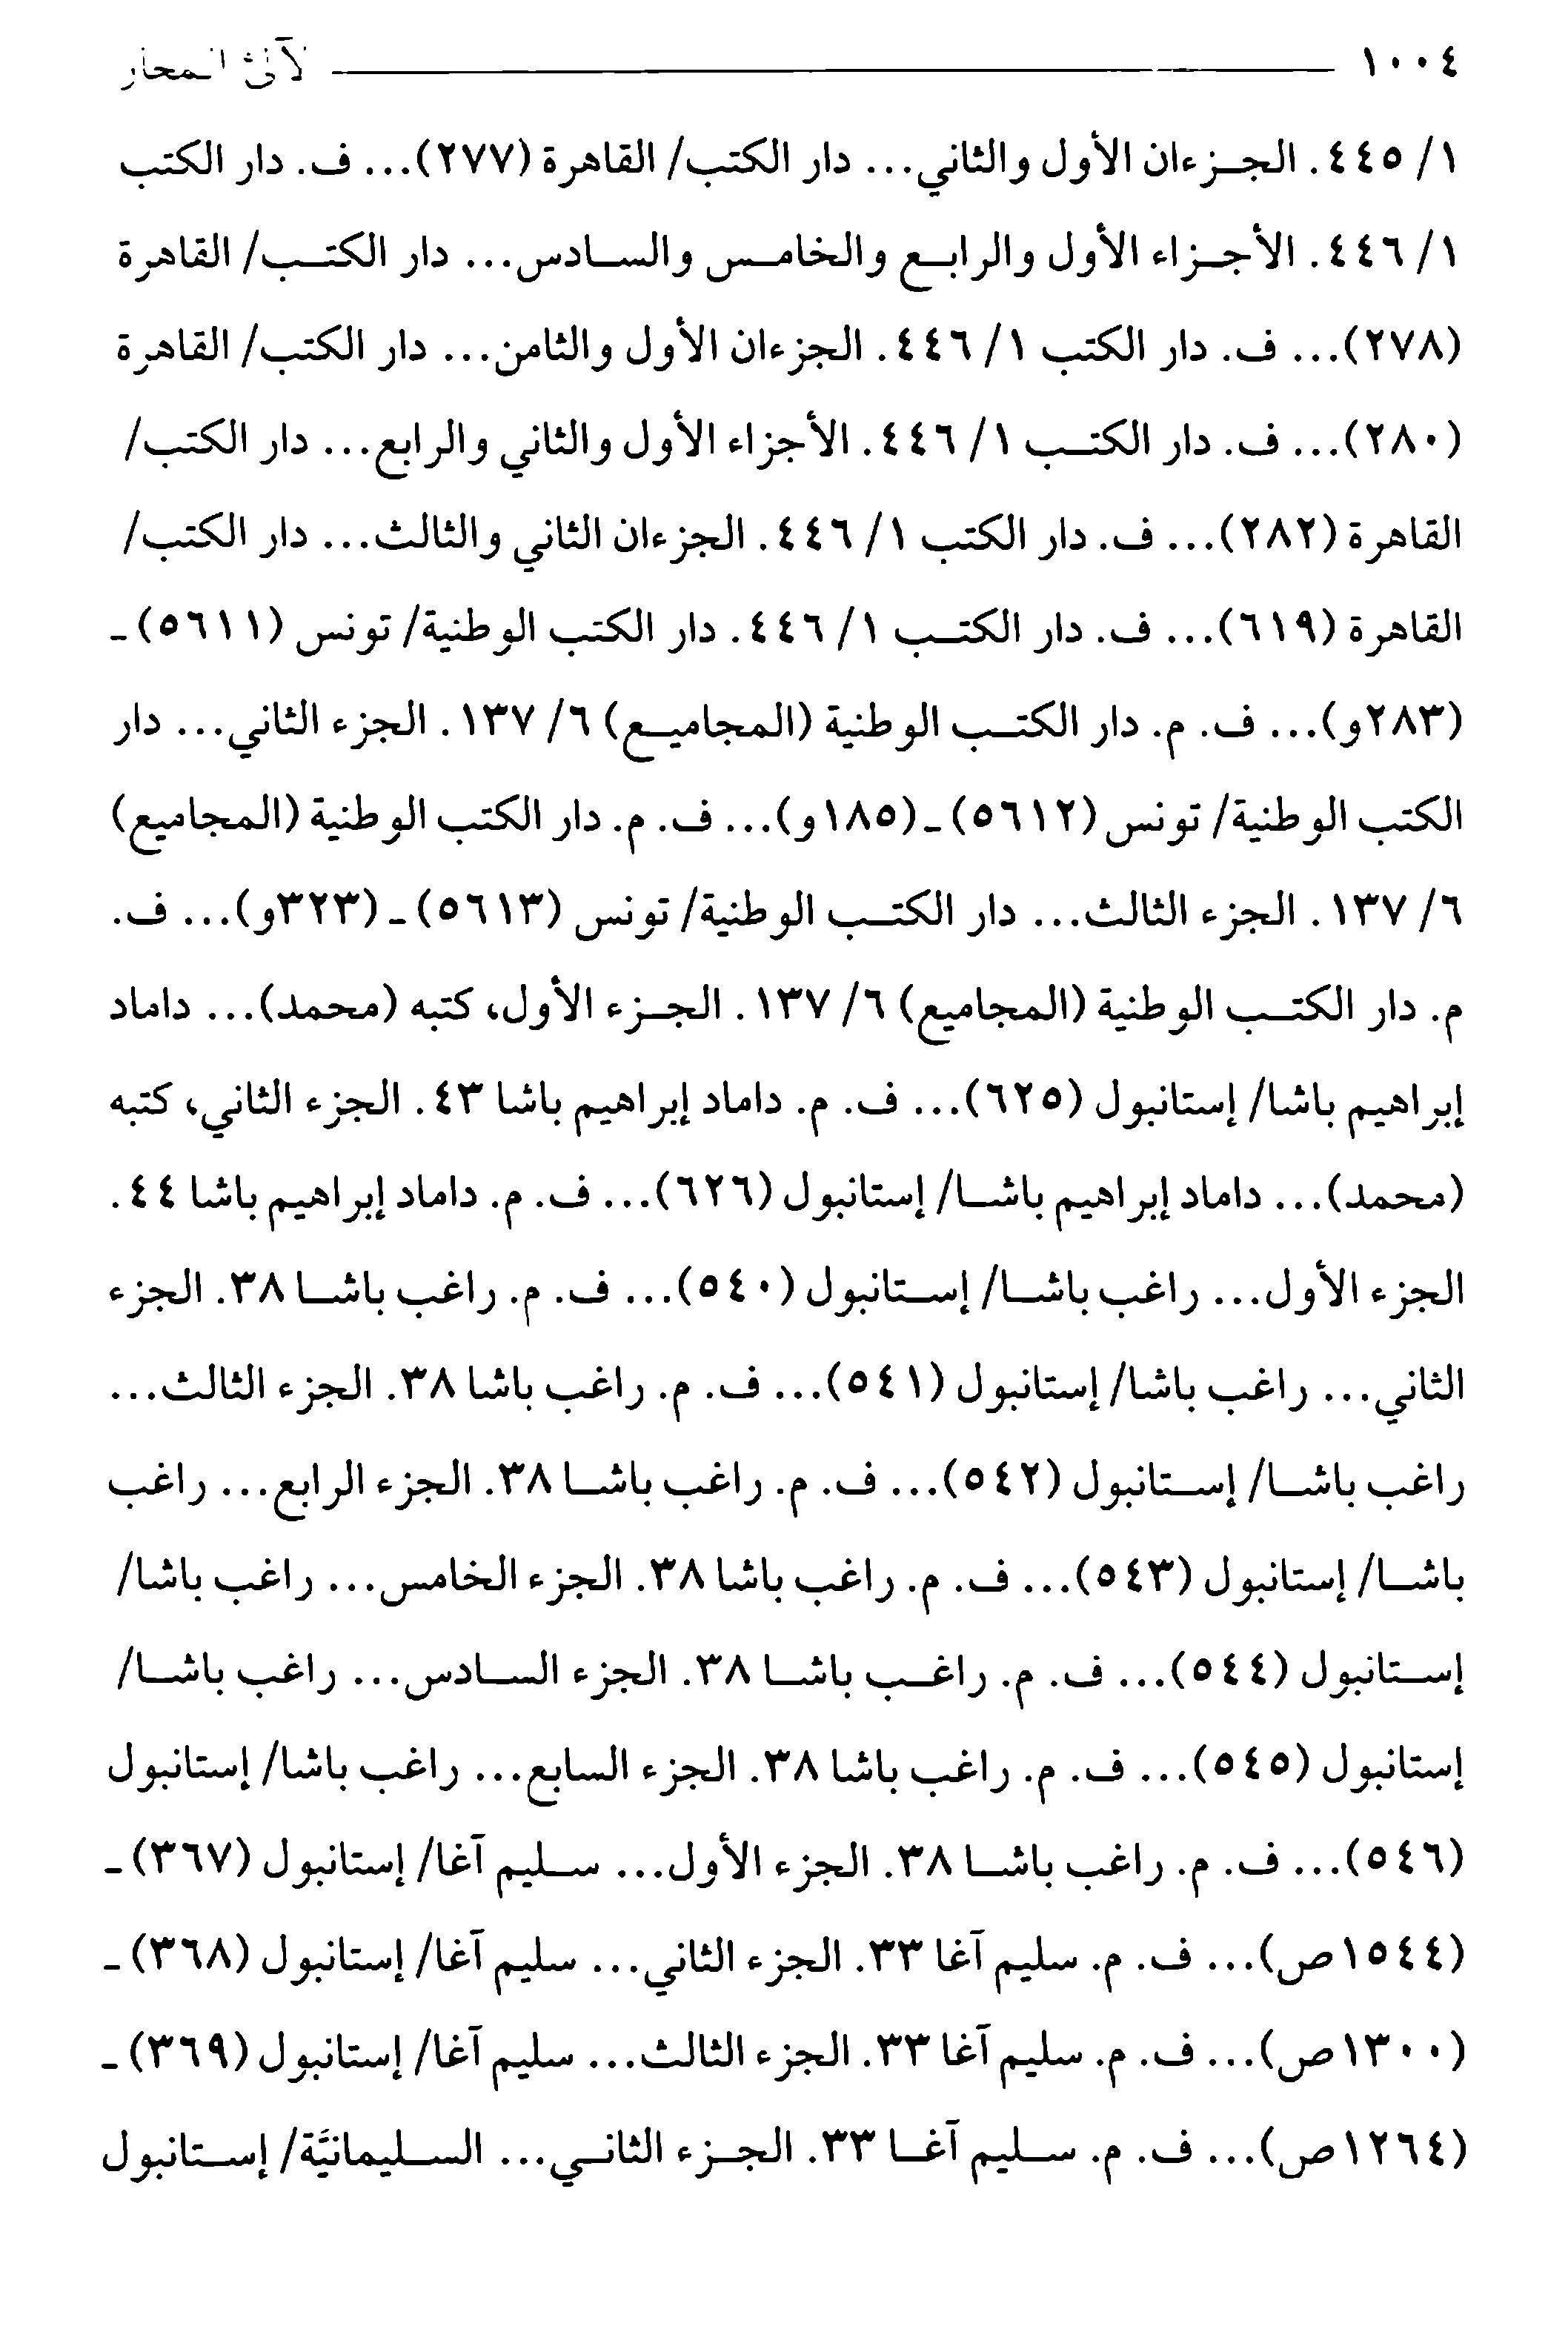 ١٠٠٤ لآلئ المحار
١/ ٤٤٥. الجزءان الأول والثاني... دار الكتب/ القاهرة (٢٧٧)... ف. دار الكتب
١/ ٤٤٦. الأجزاء الأول والرابع والخامس والسادس... دار الكتب/ القاهرة
(٢٧٨)... ف. دار الكتب ١/ ٤٤٦. الجزءان الأول والثامن... دار الكتب/ القاهرة
(٢٨٠)... ف. دار الكتب ١/ ٤٤٦. الأجزاء الأول والثاني والرابع... دار الكتب/
القاهرة (٢٨٢)... ف. دار الكتب ١/ ٤٤٦. الجزءان الثاني والثالث... دار الكتب/
القاهرة (٦١٩)... ف. دار الكتب ١/ ٤٤٦. دار الكتب الوطنية/ تونس (٥٦١١) ـ
(٢٨٣و)... ف. م. دار الكتب الوطنية (المجاميع) ٦/ ١٣٧. الجزء الثاني... دار
الكتب الوطنية/ تونس (٥٦١٢) ـ (١٨٥و)... ف. م. دار الكتب الوطنية (المجاميع)
٦/ ١٣٧. الجزء الثالث... دار الكتب الوطنية/ تونس (٥٦١٣) ـ (٣٢٣و)... ف.
م. دار الكتب الوطنية (المجاميع) ٦/ ١٣٧. الجزء الأول، كتبه (محمد)... داماد
إبراهيم باشا/ إستانبول (٦٢٥)... ف. م. داماد إبراهيم باشا ٤٣. الجزء الثاني، كتبه
(محمد)... داماد إبراهيم باشا/ إستانبول (٦٢٦)... ف. م. داماد إبراهيم باشا ٤٤.
الجزء الأول... راغب باشا/ إستانبول (٥٤٠)... ف. م. راغب باشا ٣٨. الجزء
الثاني... راغب باشا/ إستانبول (٥٤١)... ف. م. راغب باشا ٣٨. الجزء الثالث...
راغب باشا/ إستانبول (٥٤٢)... ف. م. راغب باشا ٣٨. الجزء الرابع... راغب
باشا/ إستانبول (٥٤٣)... ف. م. راغب باشا ٣٨. الجزء الخامس... راغب باشا/
إستانبول (٥٤٤)... ف. م. راغب باشا ٣٨. الجزء السادس... راغب باشا/
إستانبول (٥٤٥)... ف. م. راغب باشا ٣٨. الجزء السابع... راغب باشا/ إستانبول
(٥٤٦)... ف. م. راغب باشا ٣٨. الجزء الأول... سليم آغا/ إستانبول (٣٦٧) ـ
(١٥٤٤ص)... ف. م. سليم آغا ٣٣. الجزء الثاني... سليم آغا/ إستانبول (٣٦٨) ـ
(١٣٠٠ص)... ف. م. سليم آغا ٣٣. الجزء الثالث... سليم آغا/ إستانبول (٣٦٩) ـ
(١٢٦٤ص)... ف. م. سليم آغا ٣٣. الجزء الثاني... السليمانيَّة/ إستانبول